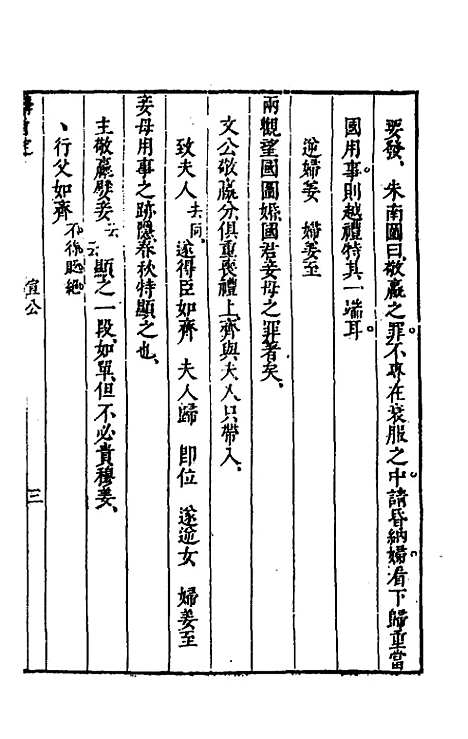 要發、朱南圖曰、敬嬴之罪、不專在衰服之中、請昏納婦、看下歸重當
國用事、則越禮特其一端耳、
逆婦姜　婦姜至
兩觀望國圖婚、國君妾母之罪著矣、
文公敬嬴分俱重、喪禮上、齊與夫人只帶入、
致夫人去同、遂得臣如齊　夫人歸　卽位　遂逆女　婦姜至
妾母用事之跡隱、春秋特顯之也、
主敬嬴嬖妾云云、顯之一段、如單、但不必責穆姜、
丶行父如齊
宣公
三